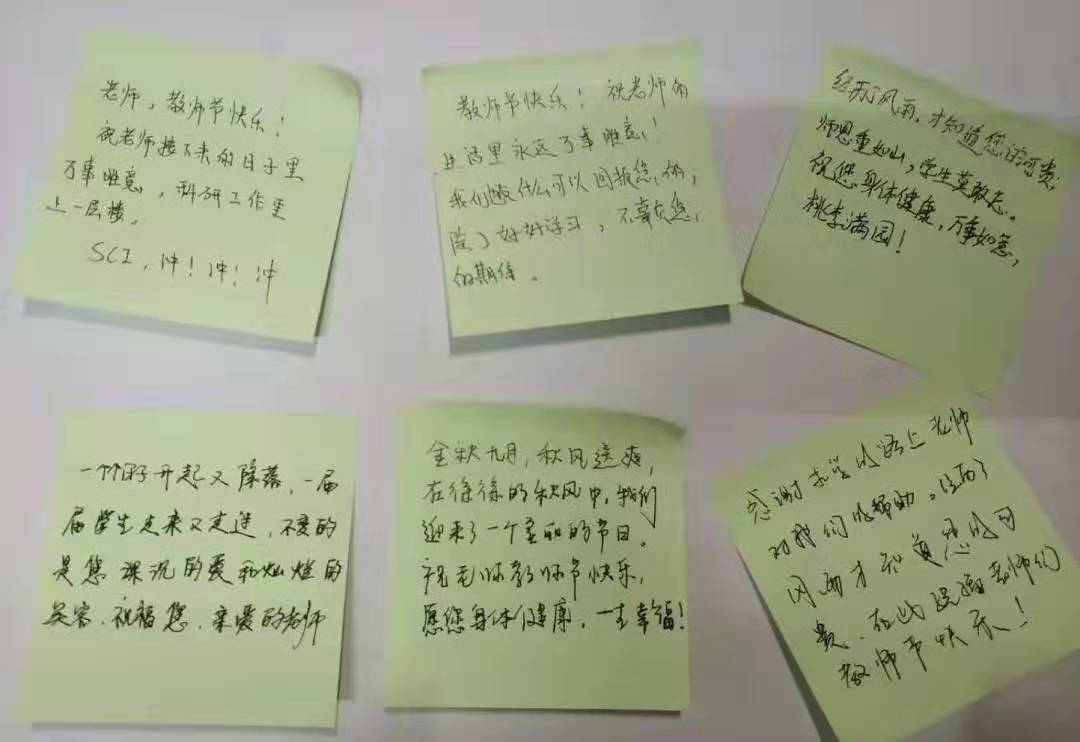 老师，教师节快乐！
祝老师接下来的日子里
万事胜意，科研工作更
上一层楼。
SCI，冲！冲！冲
教师节快乐！祝老师的
生活里永远万事胜意！
我们没什么可以回报您的，
除了好好学习，不辜负您
的期待。
经历了风雨，才知道您的可贵，
师恩重如山，学生莫敢忘。
祝您身体健康，万事如意，
桃李满园！
一个个日子升起又降落，一届
届学生走来又走进，不变的
是您深沉的爱和灿烂的
笑容，祝福您，亲爱的老师
金秋九月，秋风送爽，
在徐徐的秋风中，我们
迎来了一个美丽的节日。
祝老师教师节快乐，
愿您身体健康，一生幸福！
感谢求学的路上老师
对我们的帮助。经历了
风雨才知道您的可
贵，在此祝福老师们
教师节快乐！